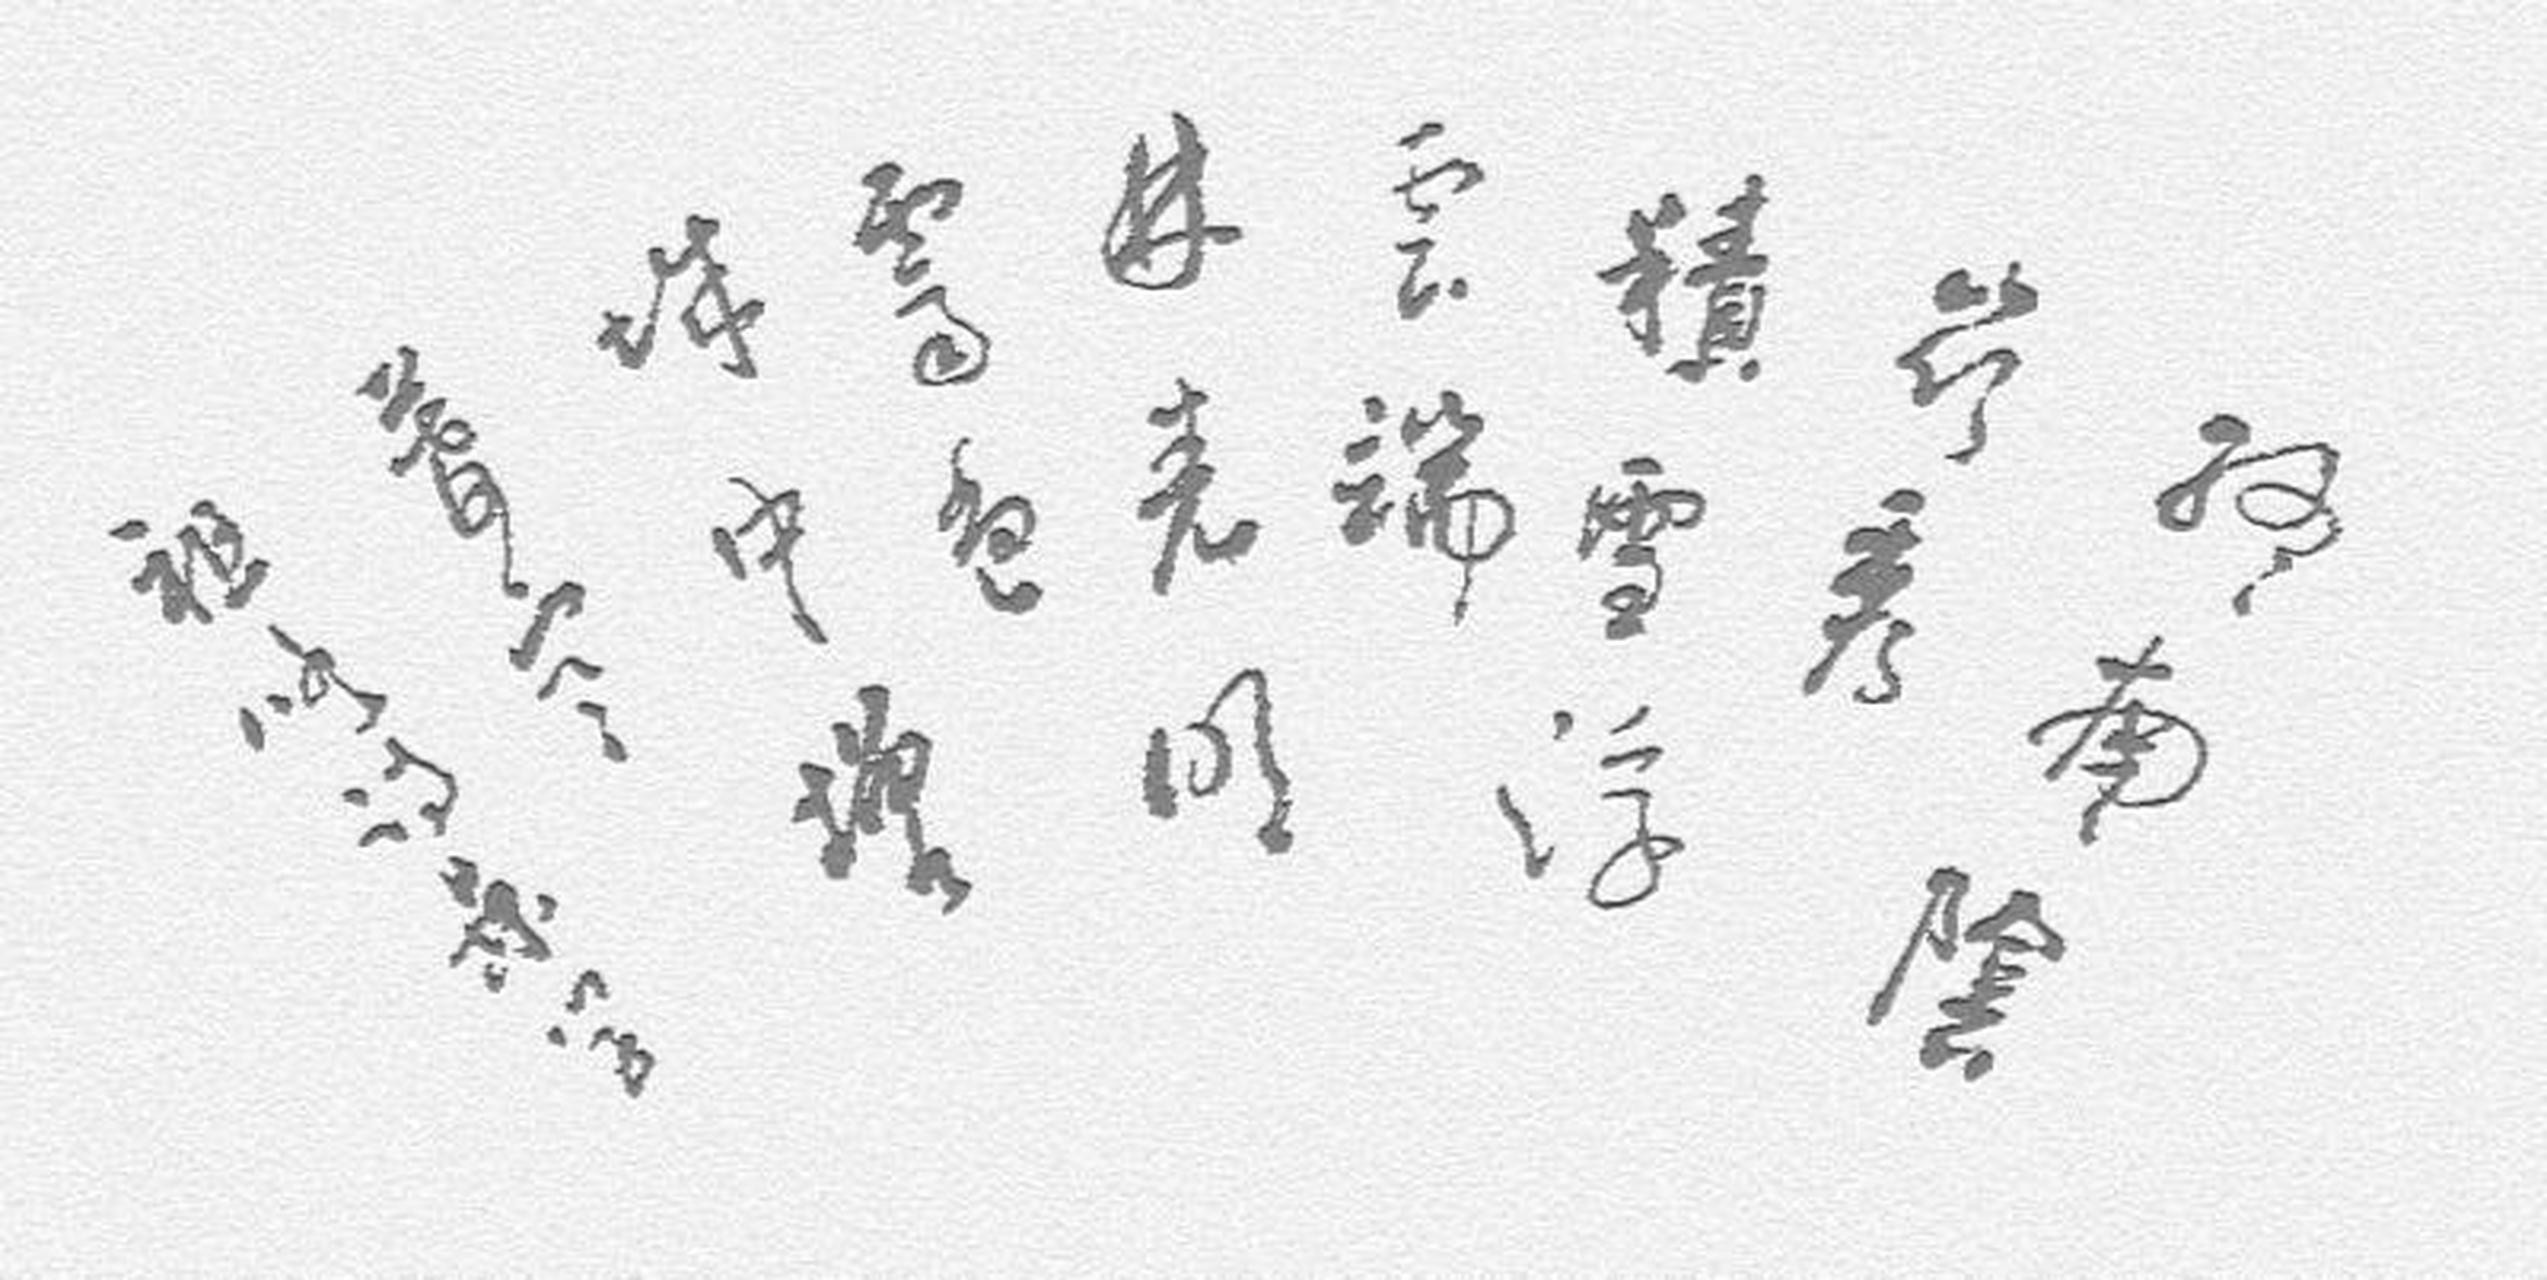 終南陰
嶺秀
積雪浮
雲端
林表明
霽色
城中增
暮寒
祖咏